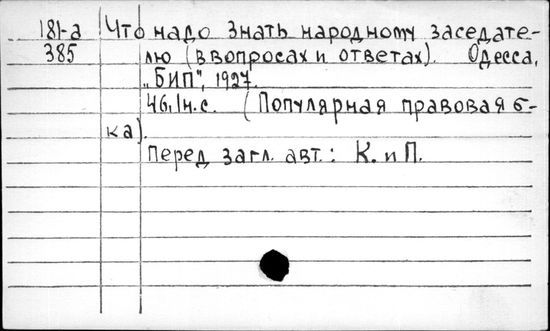 181-а Что надо знать народному заседате-
385 лю (в вопросах и ответах). Одесса,
„БИП", 1927.
46,1н.с. (Популярная правовая б-
ка).
Перед загл. авт.: К. и П.